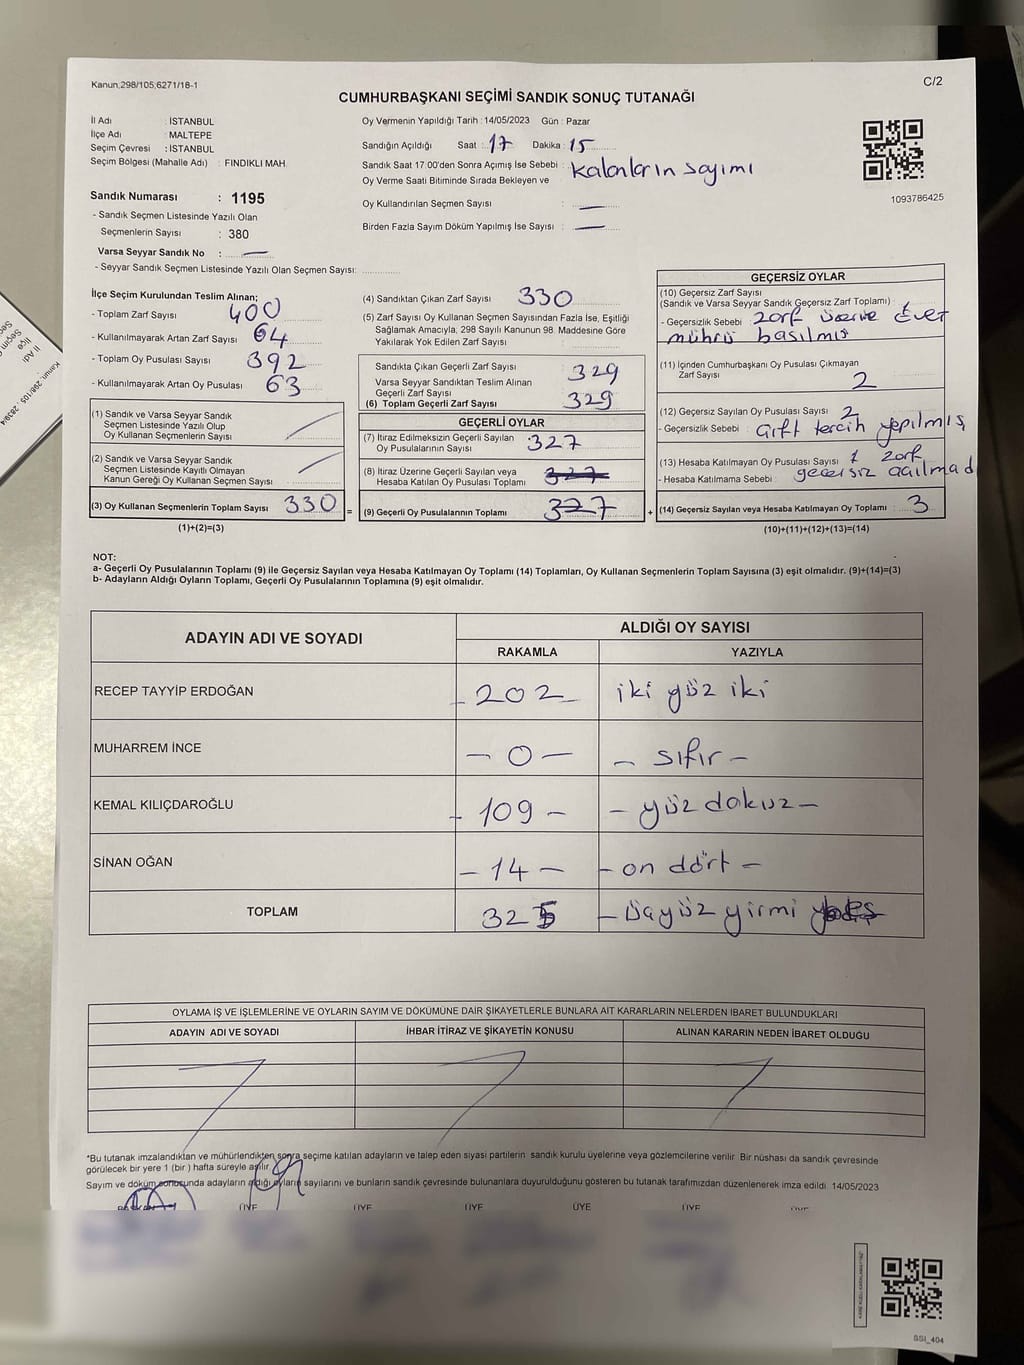 Kanun;298/105;6271/18-1
C/2
CUMHURBAŞKANI SEÇİMİ SANDIK SONUÇ TUTANAĞI
İl Adı : İSTANBUL
İlçe Adı : MALTEPE
Seçim Çevresi : İSTANBUL
Seçim Bölgesi (Mahalle Adı) : FINDIKLI MAH.
Sandık Numarası : 1195
- Sandık Seçmen Listesinde Yazılı Olan
Seçmenlerin Sayısı : 380
Varsa Seyyar Sandık No : —
- Seyyar Sandık Seçmen Listesinde Yazılı Olan Seçmen Sayısı:
Oy Vermenin Yapıldığı Tarih : 14/05/2023 Gün : Pazar
Sandığın Açıldığı Saat : 17 Dakika : 15
Sandık Saat 17:00'den Sonra Açımış İse Sebebi : kalanların sayımı
Oy Verme Saati Bitiminde Sırada Bekleyen ve
Oy Kullandırılan Seçmen Sayısı : —
Birden Fazla Sayım Döküm Yapılmış İse Sayısı : —
1093786425
İlçe Seçim Kurulundan Teslim Alınan;
- Toplam Zarf Sayısı 400
- Kullanılmayarak Artan Zarf Sayısı 64
- Toplam Oy Pusulası Sayısı 392
- Kullanılmayarak Artan Oy Pusulası 63
(1) Sandık ve Varsa Seyyar Sandık
Seçmen Listesinde Yazılı Olup
Oy Kullanan Seçmenlerin Sayısı
(2) Sandık ve Varsa Seyyar Sandık
Seçmen Listesinde Kayıtlı Olmayan
Kanun Gereği Oy Kullanan Seçmen Sayısı
(3) Oy Kullanan Seçmenlerin Toplam Sayısı 330
(1)+(2)=(3)
=
(4) Sandıktan Çıkan Zarf Sayısı 330
(5) Zarf Sayısı Oy Kullanan Seçmen Sayısından Fazla İse, Eşitliği
Sağlamak Amacıyla; 298 Sayılı Kanunun 98. Maddesine Göre
Yakılarak Yok Edilen Zarf Sayısı :
Sandıkta Çıkan Geçerli Zarf Sayısı 329
Varsa Seyyar Sandıktan Teslim Alınan
Geçerli Zarf Sayısı
(6) Toplam Geçerli Zarf Sayısı 329
GEÇERLİ OYLAR
(7) İtiraz Edilmeksizin Geçerli Sayılan
Oy Pusulalarının Toplamı 327
(8) İtiraz Üzerine Geçerli Sayılan veya
Hesaba Katılan Oy Pusulaları Toplamı 327
(9) Geçerli Oy Pusulalarının Toplamı 327
+
GEÇERSİZ OYLAR
(10) Geçersiz Zarf Sayısı
(Sandık ve Varsa Seyyar Sandık Geçersiz Zarf Toplamı) 1
- Geçersizlik Sebebi : zarf üzerine Evet
mührü basılmış
(11) İçinden Cumhurbaşkanı Oy Pusulası Çıkmayan
Zarf Sayısı 2
(12) Geçersiz Sayılan Oy Pusulası Sayısı 2
- Geçersizlik Sebebi : Çift tercih yapılmış
(13) Hesaba Katılmayan Oy Pusulası Sayısı 1 zarf
- Hesaba Katılmama Sebebi : geçersiz açılmad
(14) Geçersiz Sayılan veya Hesaba Katılmayan Oy Toplamı 3
(10)+(11)+(12)+(13)=(14)
NOT:
a- Geçerli Oy Pusulalarının Toplamı (9) ile Geçersiz Sayılan veya Hesaba Katılmayan Oy Toplamı (14) Toplamları, Oy Kullanan Seçmenlerin Toplam Sayısına (3) eşit olmalıdır. (9)+(14)=(3)
b- Adayların Aldığı Oyların Toplamı, Geçerli Oy Pusulalarının Toplamına (9) eşit olmalıdır.
ADAYIN ADI VE SOYADI
ALDIĞI OY SAYISI
RAKAMLA YAZIYLA
RECEP TAYYİP ERDOĞAN - 202 - iki yüz iki
MUHARREM İNCE - 0 - - sıfır -
KEMAL KILIÇDAROĞLU - 109 - - yüz dokuz -
SİNAN OĞAN - 14 - - on dört -
TOPLAM 325 - üçyüz yirmi
OYLAMA İŞ VE İŞLEMLERİNE VE OYLARIN SAYIM VE DÖKÜMÜNE DAİR ŞİKAYETLERLE BUNLARA AİT KARARLARIN NELERDEN İBARET BULUNDUKLARI
ADAYIN ADI VE SOYADI İHBAR İTİRAZ VE ŞİKAYETİN KONUSU ALINAN KARARIN NEDEN İBARET OLDUĞU
*Bu tutanak imzalandıktan ve mühürlendikten sonra seçime katılan adayların ve talep eden siyasi partilerin sandık kurulu üyelerine veya gözlemcilerine verilir. Bir nüshası da sandık çevresinde
görülecek bir yere 1 (bir ) hafta süreyle asılır.
Sayım ve döküm sonucunda adayların aldığı oyların sayılarını ve bunların sandık çevresinde bulunanlara duyurulduğunu gösteren bu tutanak tarafımızdan düzenlenerek imza edildi. 14/05/2023
BAŞKAN ÜYE ÜYE ÜYE ÜYE ÜYE ÜYE
SSI_404